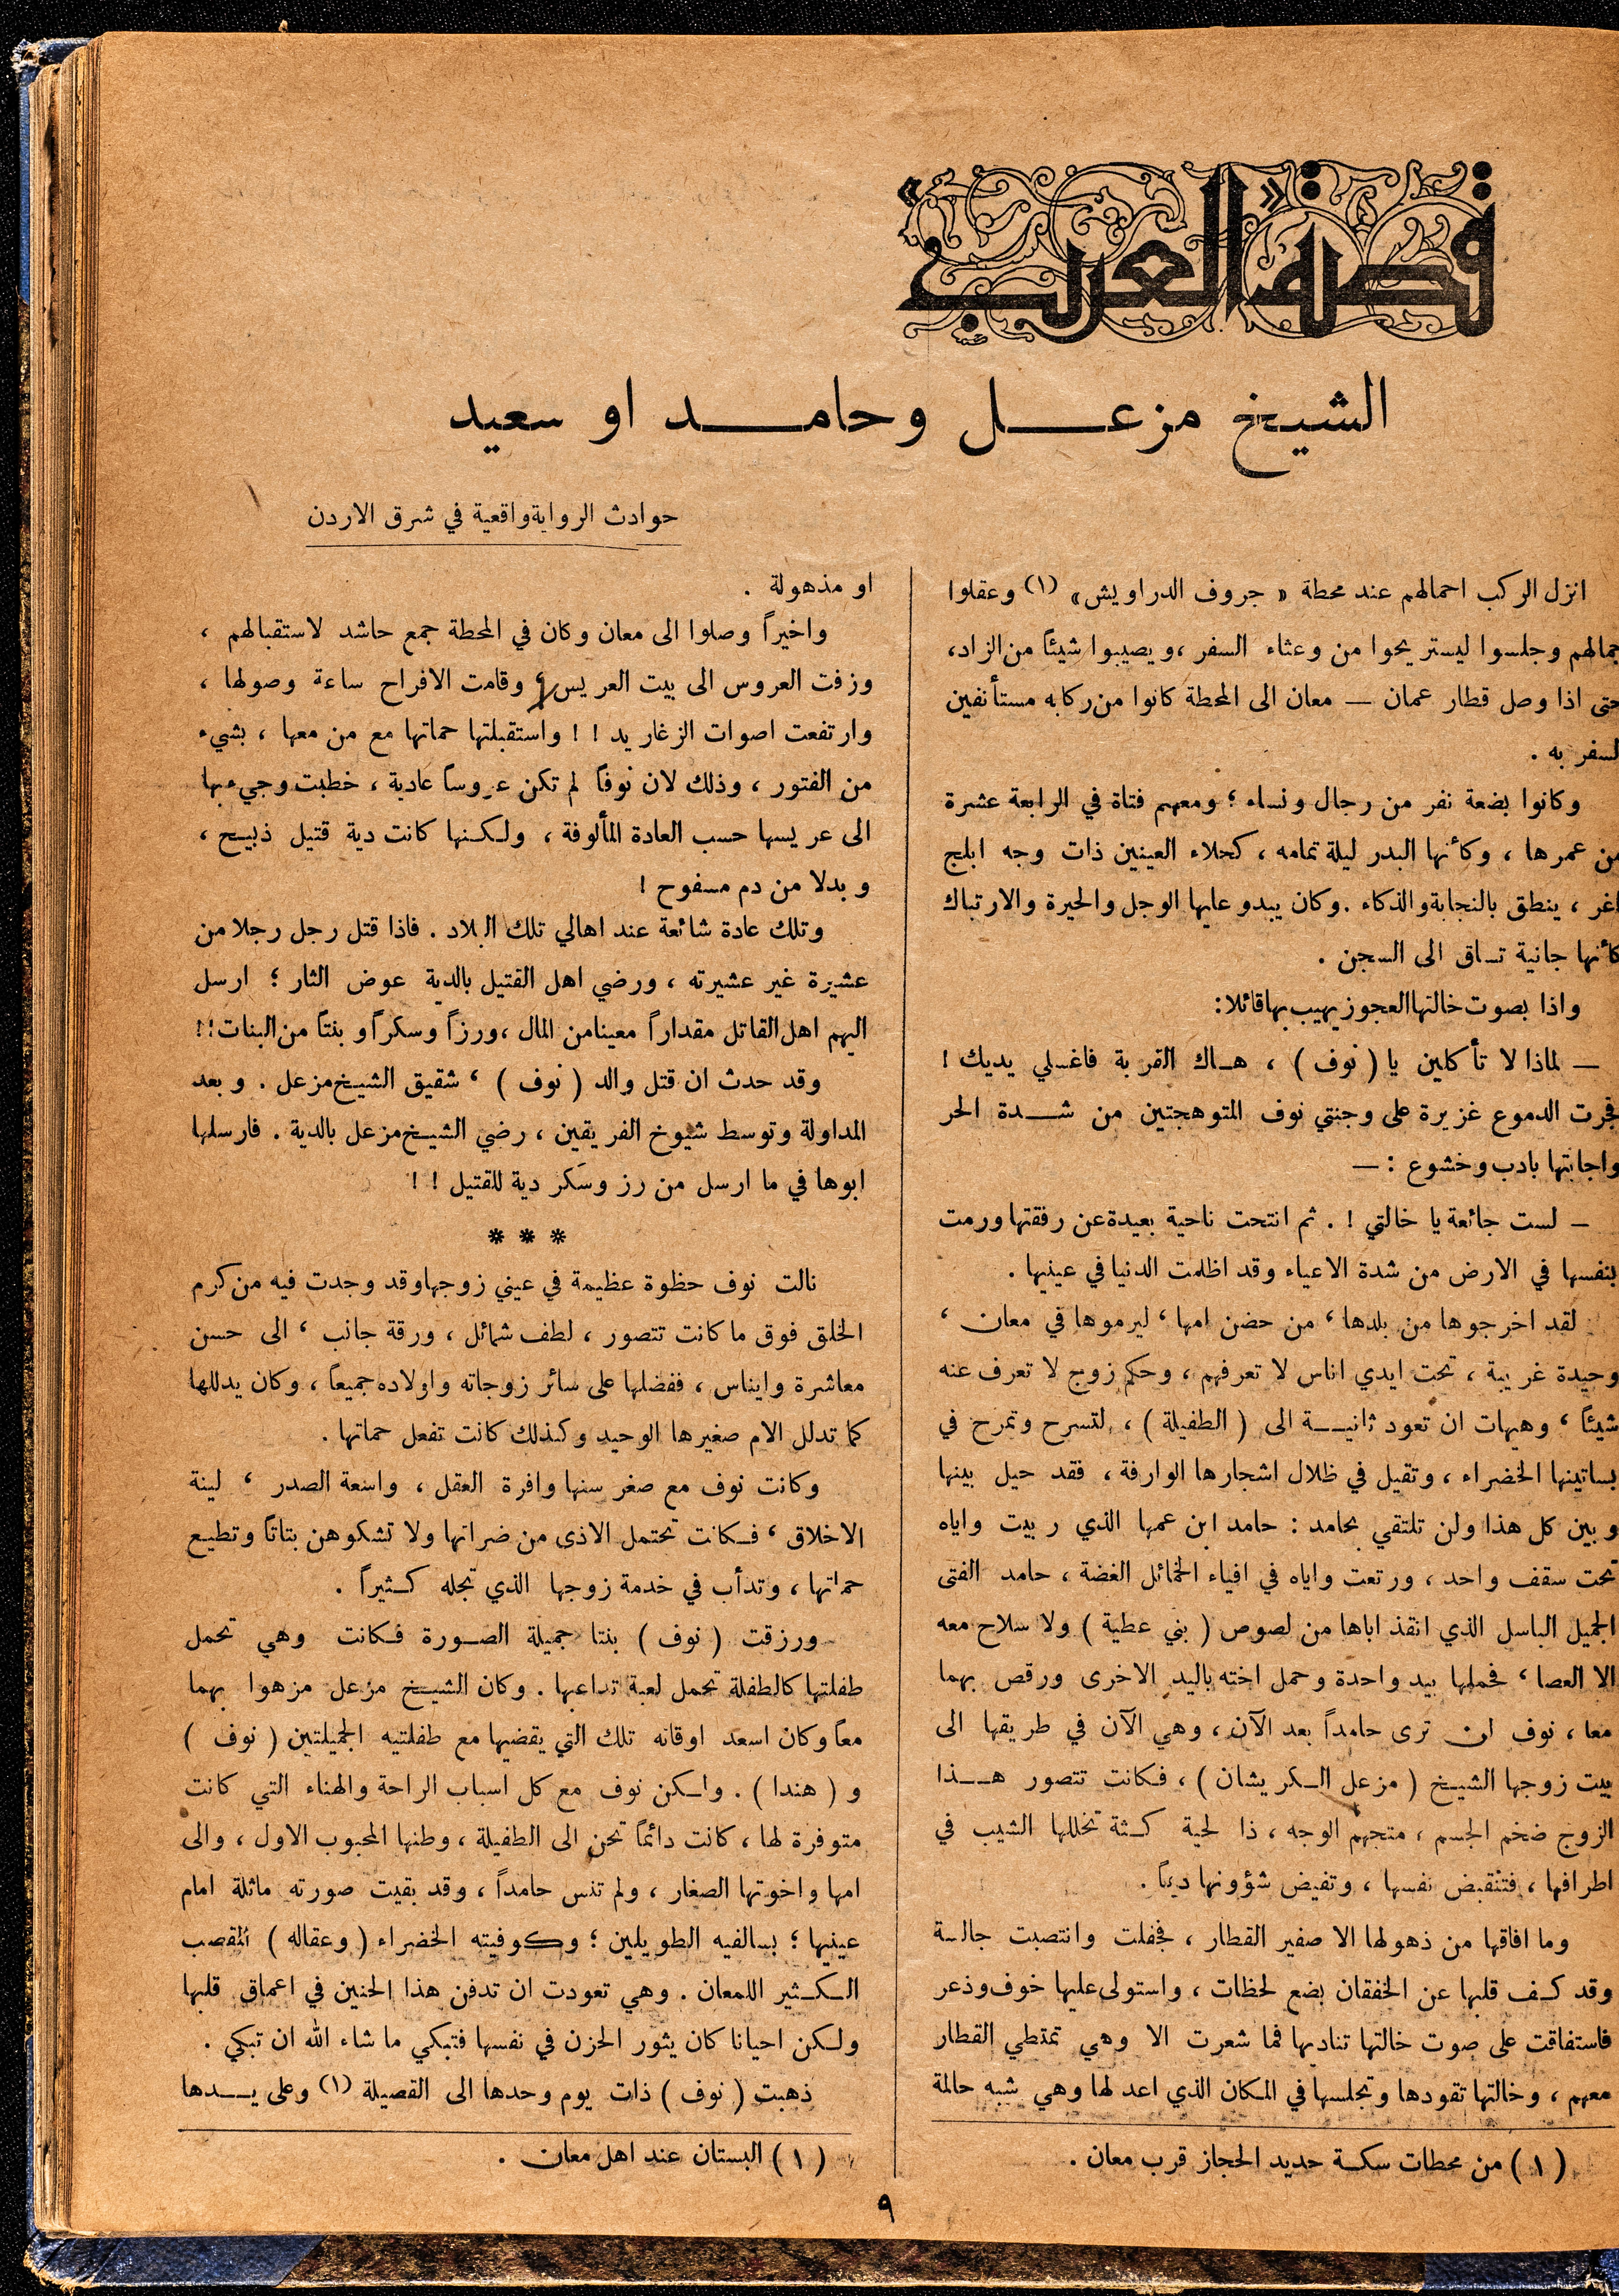 قصة العرب
الشيخ مزعل وحامد او سعيد
حوادث الرواية واقعية في شرق الاردن
انزل الركب احمالهم عند محطة « جروف الدراويش» (١) وعقلوا
جمالهم وجلسوا ليستريحوا من وعثاء السفر ، ويصيبوا شيئاً من الزاد،
حتى اذا وصل قطار عمان — معان الى المحطة كانوا من ركابه مستأنفين
السفر به .
وكانوا بضعة نفر من رجال ونساء ؛ ومعهم فتاة في الرابعة عشرة
من عمرها ، وكأنها البدر ليلة تمامه ، كحلاء العينين ذات وجه ابلج
اغر ، ينطق بالنجابة والذكاء . وكان يبدو عليها الوجل والحيرة والارتباك
كأنها جانية تساق الى السجن .
واذا بصوت خالتها العجوز يهيب بها قائلا:
— لماذا لا تأكلين يا ( نوف ) ، هاك القربة فاغسلي يديك !
فجرت الدموع غزيرة على وجنتي نوف المتوهجتين من شدة الحر
واجابتها بادب وخشوع : —
— لست جائعة يا خالتي ! . ثم انتحت ناحية بعيدة عن رفقتها ورمت
بنفسها في الارض من شدة الاعياء وقد اظلمت الدنيا في عينيها .
لقد اخرجوها من بلدها ، من حضن امها ، ليرموها في معان ،
وحيدة غريبة ، تحت ايدي اناس لا تعرفهم ، وحكم زوج لا تعرف عنه
شيئاً ، وهيهات ان تعود ثانية الى ( الطفيلة ) ، لتسرح وتمرح في
بساتينها الخضراء ، وتقيل في ظلال اشجارها الوارفة ، فقد حيل بينها
وبين كل هذا ولن تلتقي بحامد : حامد ابن عمها الذي ربيت واياه
تحت سقف واحد ، ورتعت واياه في افياء الخمائل الغضة ، حامد الفتى
الجميل الباسل الذي انقذ اباها من لصوص ( بني عطية ) ولا سلاح معه
الا العصا ، فحملها بيد واحدة وحمل اخته باليد الاخرى ورقص بهما
معا ، نوف لن ترى حامداً بعد الآن ، وهي الآن في طريقها الى
بيت زوجها الشيخ ( مزعل الكريشان ) ، فكانت تتصور هذا
الزوج ضخم الجسم ، متجهم الوجه ، ذا لحية كثة تخللها الشيب في
اطرافها ، فتنقبض نفسها ، وتفيض شؤونها دمعاً .
وما افاقها من ذهولها الا صفير القطار ، فجفلت وانتصبت جالسة
وقد كف قلبها عن الخفقان بضع لحظات ، واستولى عليها خوف وذعر
فاستفاقت على صوت خالتها تناديها فما شعرت الا وهي تمتطي القطار
معهم ، وخالتها تقودها وتجلسها في المكان الذي اعد لها وهي شبه حالمة
(١) من محطات سكة حديد الحجاز قرب معان .
او مذهولة .
واخيراً وصلوا الى معان وكان في المحطة جمع حاشد لاستقبالهم ،
وزفت العروس الى بيت العريس وقامت الافراح ساعة وصولها ،
وارتفعت اصوات الزغاريد ! ! واستقبلتها حماتها مع من معها ، بشيء
من الفتور ، وذلك لان نوفاً لم تكن عروساً عادية ، خطبت وجيء بها
الى عريسها حسب العادة المألوفة ، ولكنها كانت دية قتيل ذبيح ،
وبدلا من دم مسفوح !
وتلك عادة شائعة عند اهالي تلك البلاد . فاذا قتل رجل رجلا من
عشيرة غير عشيرته ، ورضي اهل القتيل بالدية عوض الثار ؛ ارسل
اليهم اهل القاتل مقداراً معينا من المال ، ورزاً وسكراً وبنتاً من البنات!!
وقد حدث ان قتل والد ( نوف ) ، شقيق الشيخ مزعل . وبعد
المداولة وتوسط شيوخ الفريقين ، رضي الشيخ مزعل بالدية . فارسلها
ابوها في ما ارسل من رز وسَكر دية للقتيل ! !
* * *
نالت نوف حظوة عظيمة في عيني زوجها وقد وجدت فيه من كرم
الخلق فوق ما كانت تتصور ، لطف شمائل ، ورقة جانب ، الى حسن
معاشرة وايناس ، ففضلها على سائر زوجاته واولاده جميعاً ، وكان يدللها
كما تدلل الام صغيرها الوحيد وكذلك كانت تفعل حماتها .
وكانت نوف مع صغر سنها وافرة العقل ، واسعة الصدر ، لينة
الاخلاق ، فكانت تحتمل الاذى من ضراتها ولا تشكوهن بتاتاً وتطيع
حماتها ، وتدأب في خدمة زوجها الذي تجله كثيراً .
ورزقت ( نوف ) بنتا جميلة الصورة فكانت وهي تحمل
طفلتها كالطفلة تحمل لعبة تداعبها . وكان الشيخ مزعل مزهوا بهما
معاً وكان اسعد اوقاته تلك التي يقضيها مع طفلتيه الجميلتين ( نوف )
و ( هندا ) . ولكن نوف مع كل اسباب الراحة والهناء التي كانت
متوفرة لها ، كانت دائماً تحن الى الطفيلة ، وطنها المحبوب الاول ، والى
امها واخوتها الصغار ، ولم تنس حامداً ، وقد بقيت صورته ماثلة امام
عينيها ؛ بسالفيه الطويلين ؛ وكوفيته الخضراء ( وعقاله ) المقصب
الكثير اللمعان . وهي تعودت ان تدفن هذا الحنين في اعماق قلبها
ولكن احيانا كان يثور الحزن في نفسها فتبكي ما شاء الله ان تبكي .
ذهبت ( نوف ) ذات يوم وحدها الى القصيلة (١) وعلى يدها
(١) البستان عند اهل معان .
٩